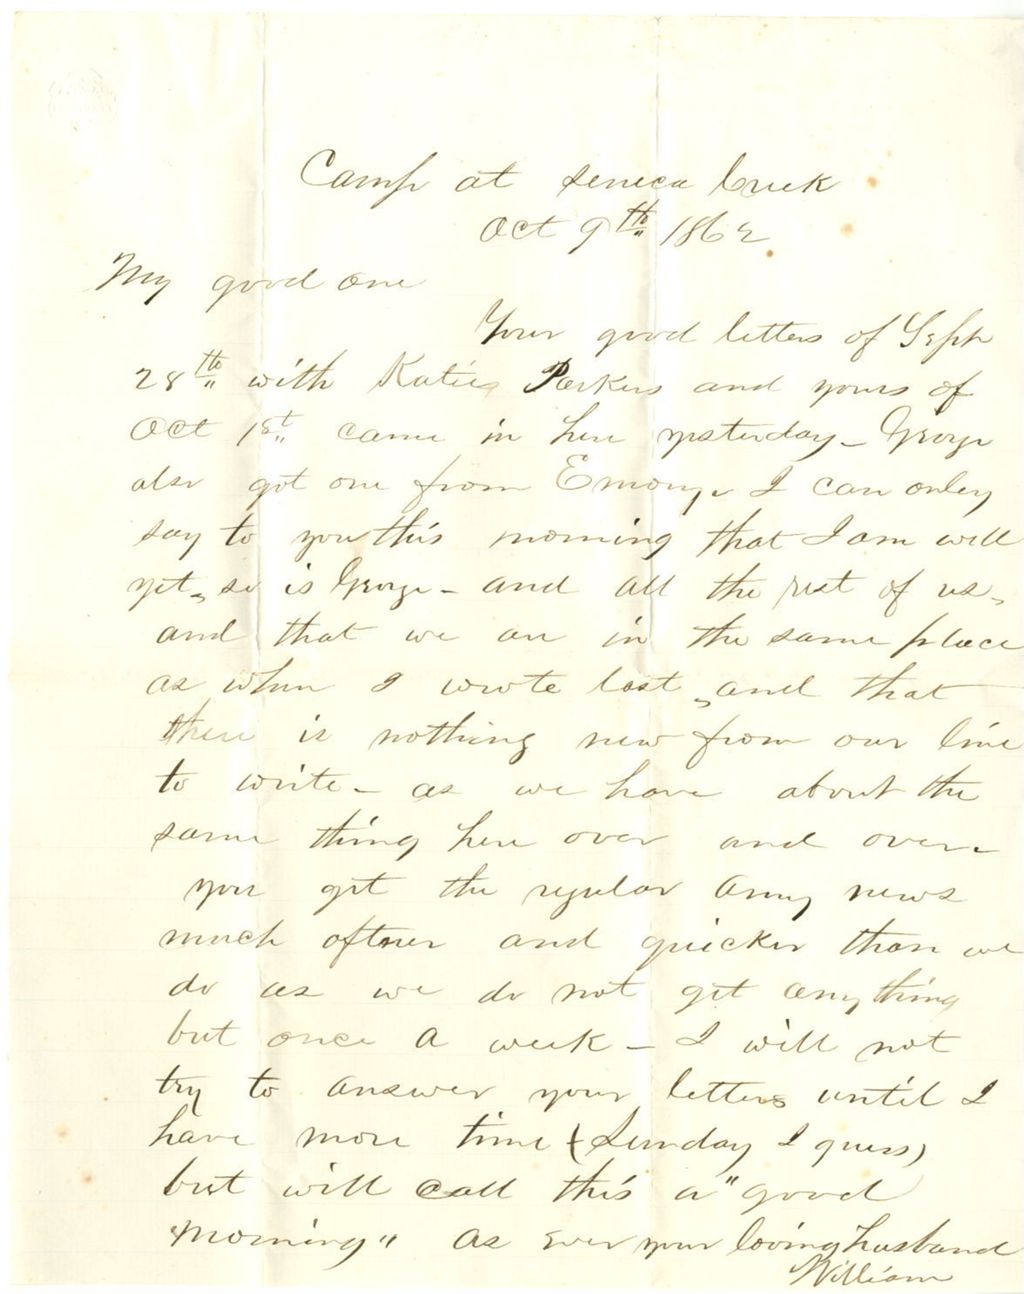 Camp at Seneca Creek
Oct 9th 1862
My good one
Your good letters of Sept
28th with Katies Parkers and yours of
Oct 1st came in here yesterday - George
also got one from Emory. I can only
say to you this morning that I am well
yet, so is George - and all the rest of us,
and that we are in the same place
as when I wrote last, and that
there is nothing new from our line
to write - as we have about the
same thing here over and over.
you get the regular army news
much oftner and quicker than we
do as we do not get any thing
but once a week - I will not
try to answer your letters until I
have more time (Sunday I guess)
but will call this a "good
morning" as ever your loving husband
William